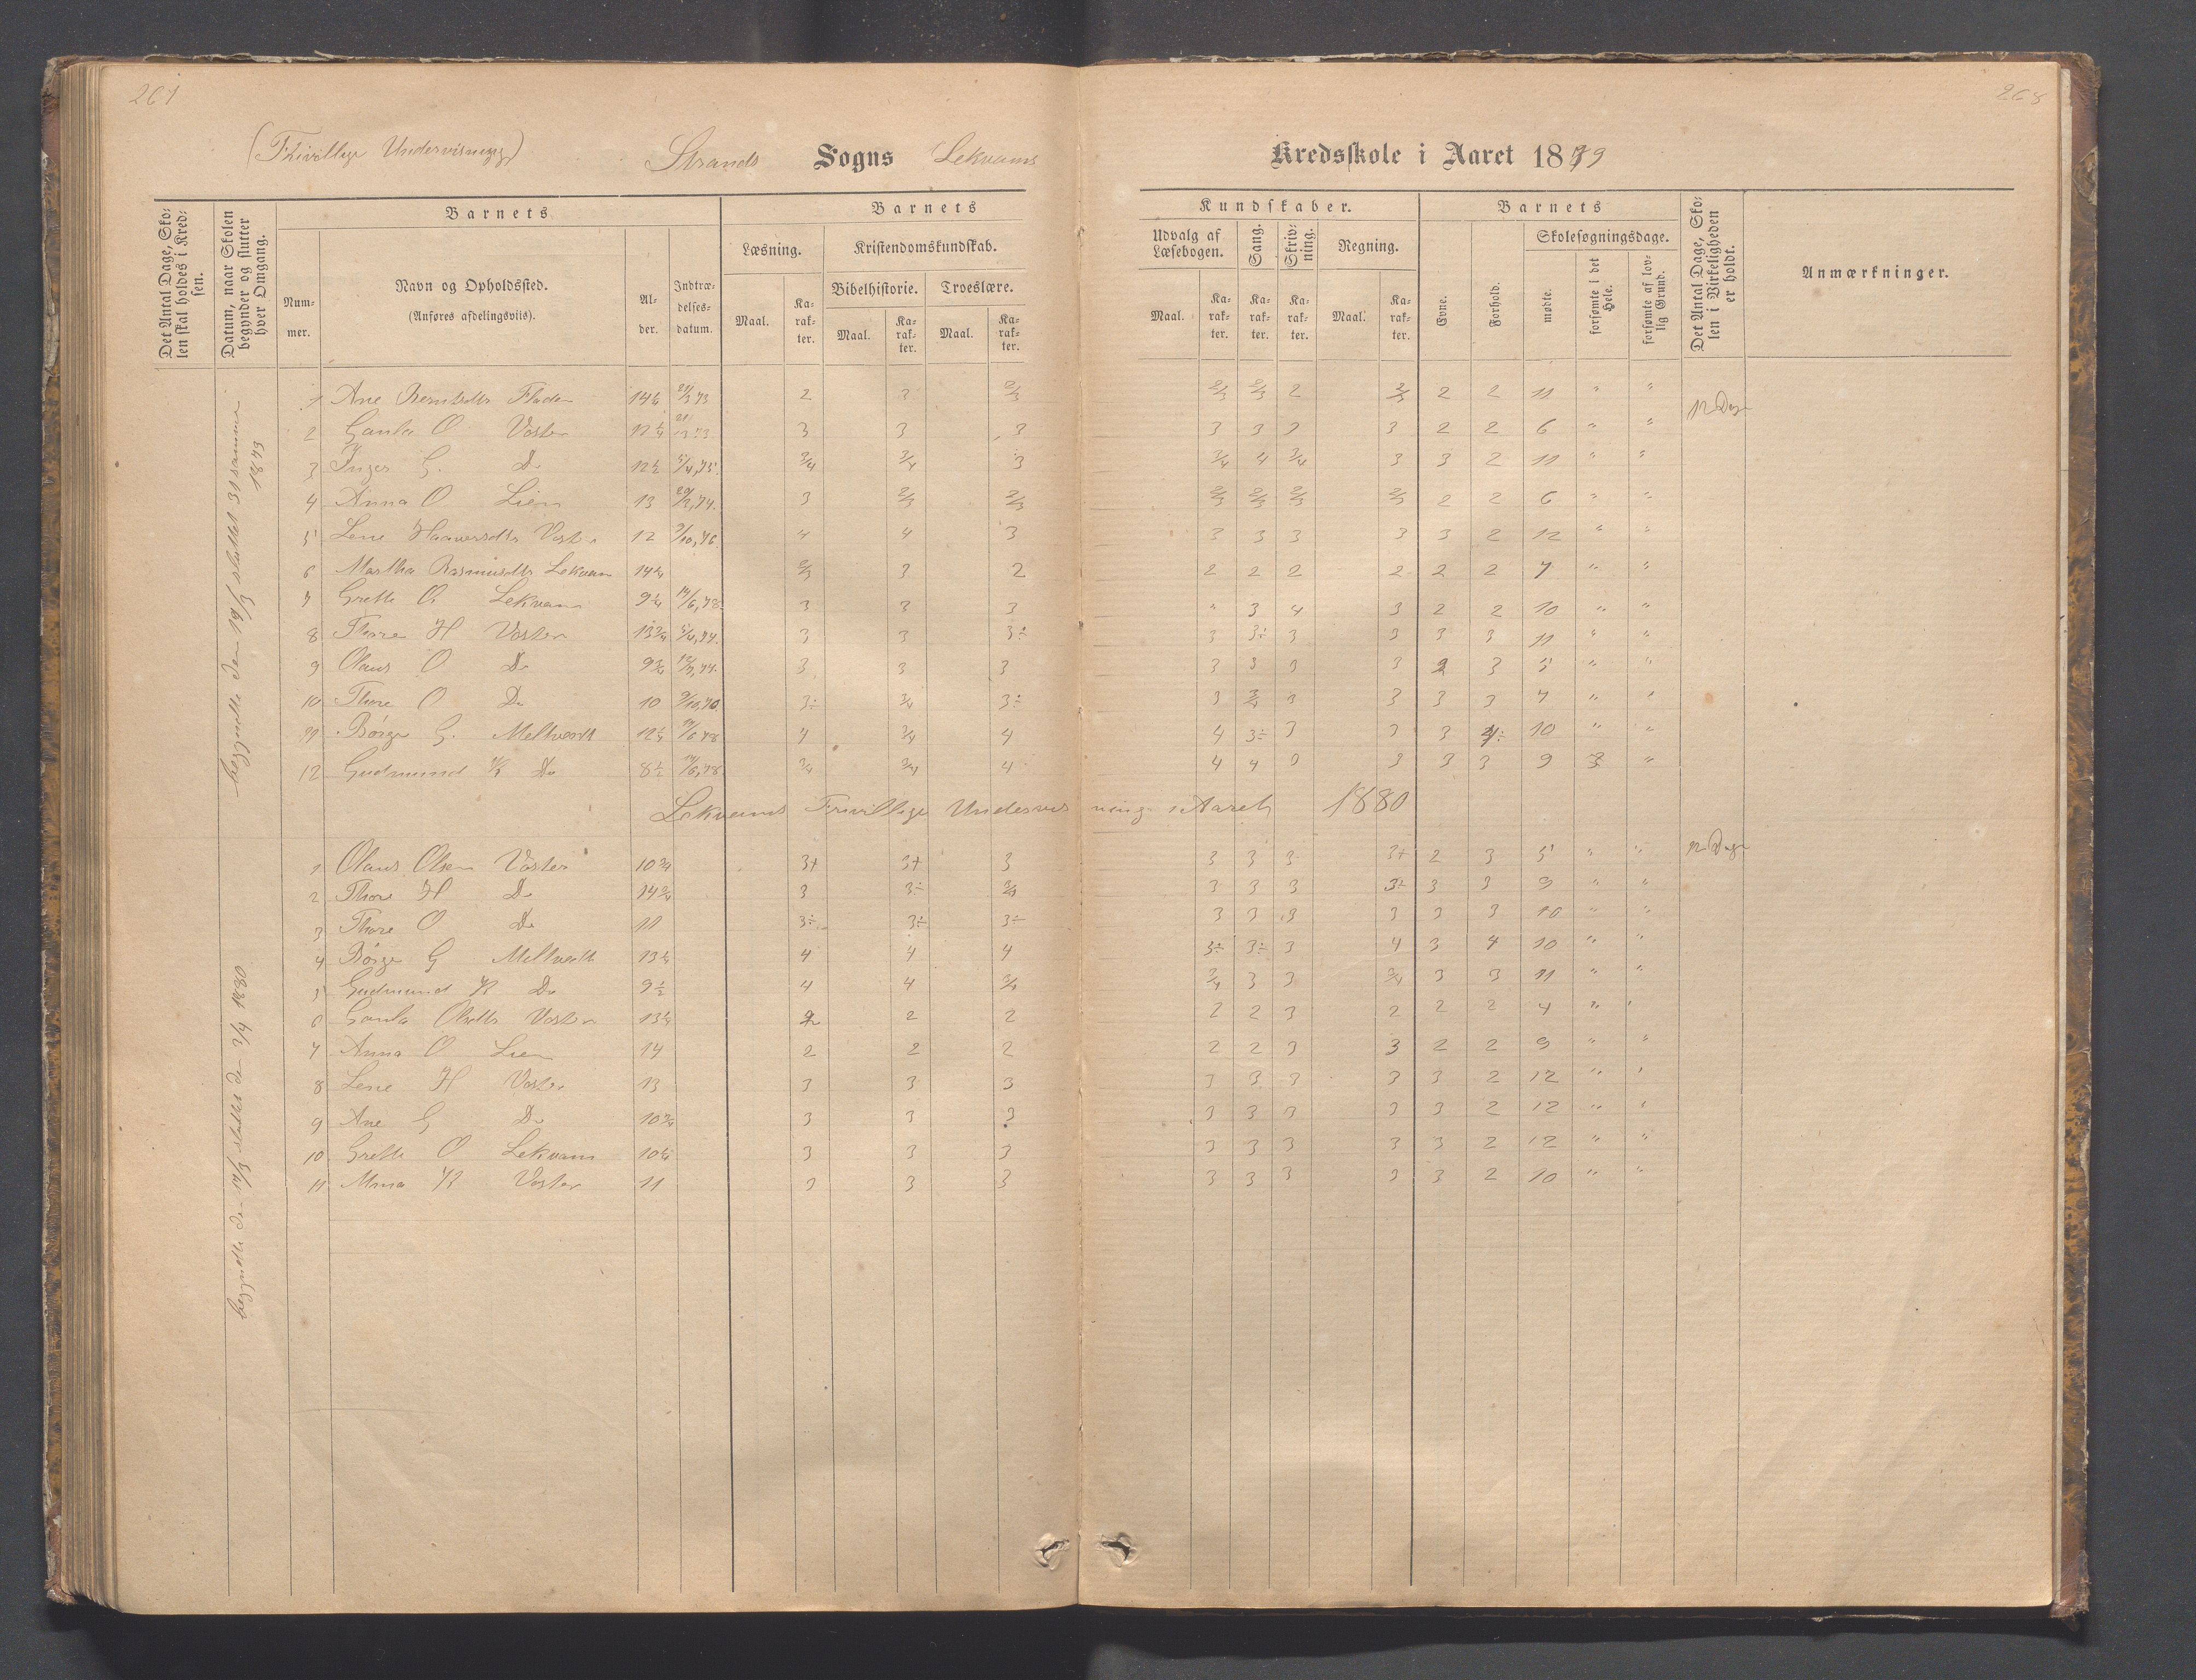 261
268
(Frivillige Undervisning)
Strands Sogns Lekvams Kredsskole i Aaret 1879
Det Antal Dage, Skolen skal holdes i Kredsen.
Datum, naar Skolen begynder og slutter hver Omgang.
Barnets
Barnets Kundskaber.
Barnets
Det Antal Dage, Skolen i Virkeligheden er holdt.
Anmærkninger.
Nummer.
Navn og Opholdssted.
(Anføres afdelingsviis).
Alder.
Indtrædelses-datum.
Læsning.
Kristendomskundskab.
Bibelhistorie.
Troeslære.
Udvalg af Læsebogen.
Sang.
Skrivning.
Regning.
Evne.
Forhold.
Skolesøgningsdage.
mødte.
forsømte i det Hele.
forsømte af lovlig Grund.
Maal. Karakter. Maal. Karakter. Maal. Karakter. Maal. Karakter. Karakter. Karakter. Maal. Karakter.
begyndte den 19/3 sluttet 31 samme 1879
1 Ane Berntsdtr 14 2 3 2/3 2/3 2/3 2 2/3 2 2 11 " " 12 Dage
2 O Voster 12 1/4 3 3 3 3 3 3 3 2 2 6 " "
3 Inger G. Do 12 1/2 5/4,75. 3/4 3/4 3 3/4 4 3/4 3 3 2 11 " "
4 Anna O Lien 13 3 2/3 2/3 2/3 2/3 2/3 2/3 2 2 6 " "
5 Lene Haaversdtr Voster 12 9/10,76 4 4 3 3 3 3 3 3 2 12 " "
6 Martha Rasmusdtr Lekvam 14 1/4 2/3 3 2 2 2 2 2 2 2 7 " "
7 Grethe O. Lekvam 9 1/4 19/6,78 3 3 3 " 3 4 3 2 2 10 " "
8 Thore H Voster 13 3/4 5/4,74. 3 3 3÷ 3 3÷ 3 3 3 3 11 " "
9 Olaus O Do 9 3/4 3 3 3 3 3 3 3 2 3 5 " "
10 Thore O Do 10 3÷ 3/4 3÷ 3 3/4 3 3 3 3 7 " "
11 Børge G. Meltvedt 12 1/4 19/6,78 4 3/4 4 4 3÷ 3 3 3 10 " "
12 Gudmund K Do 8 1/2 19/6,78 3/4 3/4 4 4 4 3 3 3 3 9 3 "
Lekvams Frivillige Undervisning i Aaret 1880
begyndte den 19/3 sluttet den 2/4 1880
1 Olaus Olsen Voster 10 3/4 3+ 3+ 3 3 3 3 3+ 2 3 5 " " 12 Dage
2 Thore H Do 14 3/4 3 3÷ 3/4 3 3 3 3÷ 3 3 9 " "
3 Thore O Do 11 3÷ 3÷ 3÷ 3 3 3 3 3 3 10 " "
4 Børge G Meltvedt 13 1/4 4 4 4 3÷ 3÷ 3 4 3 4 10 " "
5 Gudmund K Do 9 1/2 4 4 3/4 3/4 3 3 3/4 3 3 11 " "
6 Olsdtr Voster 13 1/4 2 2 2 2 2 3 2 2 2 4 " "
7 Anna O Lien 14 2 2 2 2 2 3 3 2 2 9 " "
8 Lene H Voster 13 3 3 3 3 3 3 3 3 2 12 " "
9 Ane G Do 10 3/4 3 3 3 3 3 3 3 3 2 12 " "
10 Grethe O Lekvam 10 1/4 3 3 3 3 3 3 3 3 2 12 " "
11 K Voster 11 3 3 3 3 3 3 3 3 2 10 " "